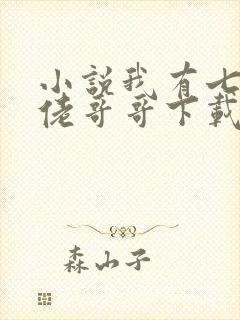 小說我有七
佬哥哥下載
森山子